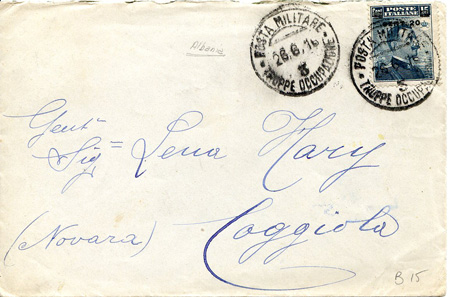 Albania
POSTA MILITARE
26.6.16
3
TRUPPE OCCUPAZIONE
POSTE ITALIANE
15
20
POSTA MILITARE
3
TRUPPE OCCUPA
Gent
Sig = Lena Mary
(Novara) Coggiola
B 15